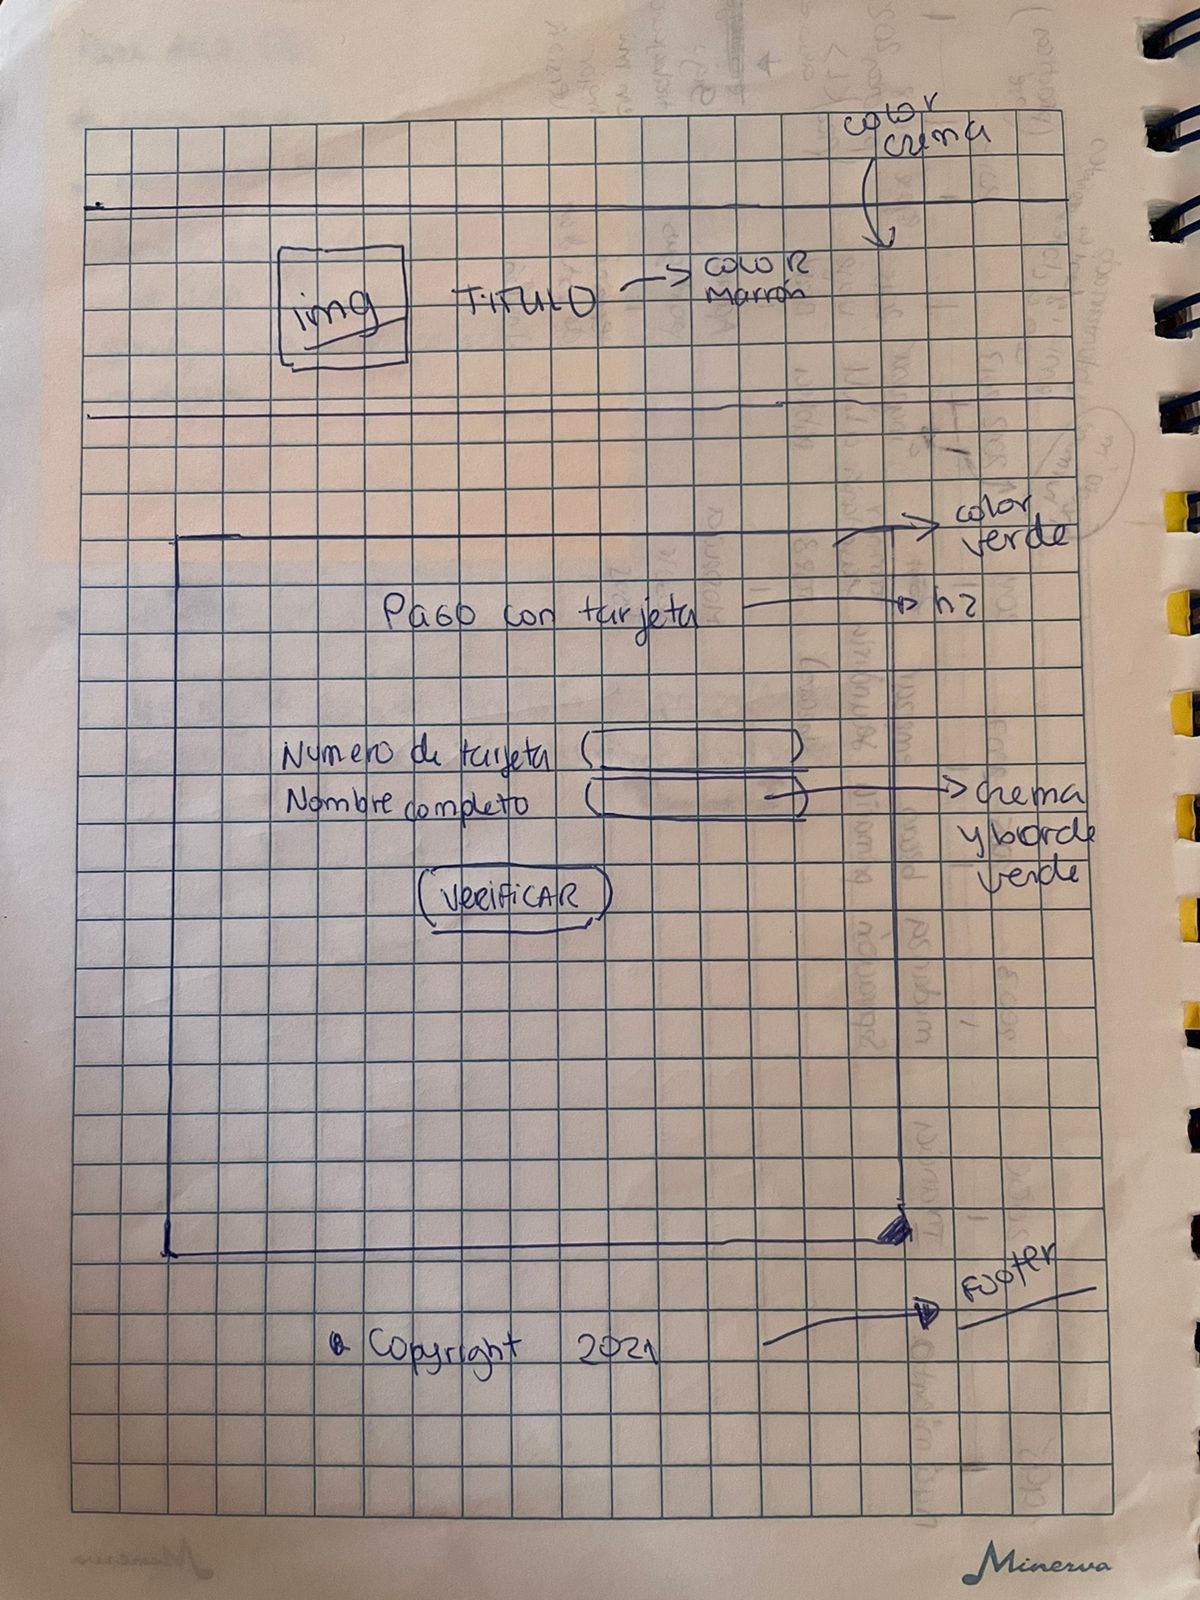 color
crema
img
TITULO
COLOR
marrón
color
verde
Pago con tarjeta
h2
Numero de tarjeta
Nombre completo
crema
y borde
verde
VERIFICAR
Footer
Copyright 2021
Minerva